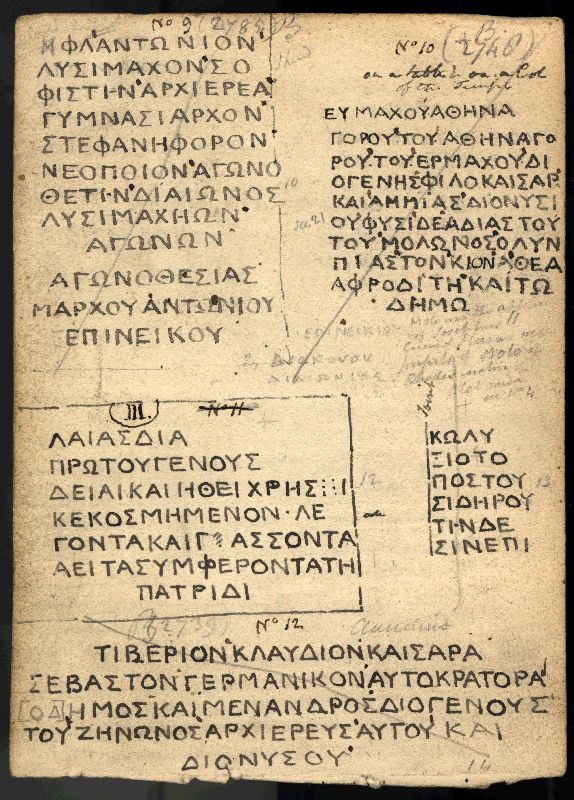 No 9 (2785)
Μ ΦΛ ΑΝΤΩΝΙΟΝ
ΛΥΣΙΜΑΧΟΝ ΣΟ
ΦΙΣΤΗΝ ΑΡΧΙΕΡΕΑ
ΓΥΜΝΑΣΙΑΡΧΟΝ
ΣΤΕΦΑΝΗΦΟΡΟΝ
ΝΕΟΠΟΙΟΝ ΑΓΩΝΟ
ΘΕΤΗΝ ΔΙ ΑΙΩΝΟΣ
ΛΥΣΙΜΑΧΗΩΝ
ΑΓΩΝΩΝ
ΑΓΩΝΟΘΕΣΙΑΣ
ΜΑΡΧΟΥ ΑΝΤΩΝΙΟΥ
ΕΠΙΝΕΙΚΟΥ
No 10 (2748)
on a tablet on a Col
of the Temple
ΕΥΜΑΧΟΥ ΑΘΗΝΑ
ΓΟΡΟΥ ΤΟΥ ΑΘΗΝΑΓΟ
ΡΟΥ ΤΟΥ ΕΡΜΑΧΟΥ ΔΙ
ΟΓΕΝΗΣ ΦΙΛΟΚΑΙΣΑΡ
ΚΑΙ ΑΜΜΙΑΣ ΔΙΟΝΥΣΙ
ΟΥ ΦΥΣΙ ΔΕ ΑΔΙΑΣΤΟΥ
ΤΟΥ ΜΟΛΩΝΟΣ ΟΛΥΝ
ΠΙΑΣ ΤΟΝ ΚΙΟΝΑ ΘΕΑ
ΑΦΡΟΔΙΤΗ ΚΑΙ ΤΩ
ΔΗΜΩ
III. No 11
ΛΑΙΑΣΔΙΑ
ΠΡΩΤΟΥΓΕΝΟΥΣ
ΔΕΙΑΙΚΑΙΗΘΕΙΧΡΗΣ⋮⋮Ι
ΚΕΚΟΣΜΗΜΕΝΟΝ·ΛΕ
ΓΟΝΤΑΚΑΙΓ ΑΣΣΟΝΤΑ
ΑΕΙΤΑΣΥΜΦΕΡΟΝΤΑΤΗ
ΠΑΤΡΙΔΙ
12
ΚΩΛΥ
ΞΙΟΤΟ
ΠΟΣΤΟΥ
ΣΙΔΗΡΟΥ
ΤΙΝΔΕ
ΣΙΝΕΠΙ
13
No 12
(2739)
Claudius
ΤΙΒΕΡΙΟΝ ΚΛΑΥΔΙΟΝ ΚΑΙΣΑΡΑ
ΣΕΒΑΣΤΟΝ ΓΕΡΜΑΝΙΚΟΝ ΑΥΤΟΚΡΑΤΟΡΑ
[ΟΔ]ΗΜΟΣ ΚΑΙ ΜΕΝΑΝΔΡΟΣ ΔΙΟΓΕΝΟΥΣ
ΤΟΥ ΖΗΝΩΝΟΣ ΑΡΧΙΕΡΕΥΣ ΑΥΤΟΥ ΚΑΙ
ΔΙΟΝΥΣΟΥ
14